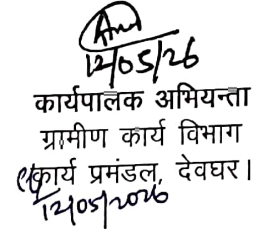 12/05/26
कार्यपालक अभियन्ता
ग्रामीण कार्य विभाग
कार्य प्रमंडल, देवघर।
12/05/2026